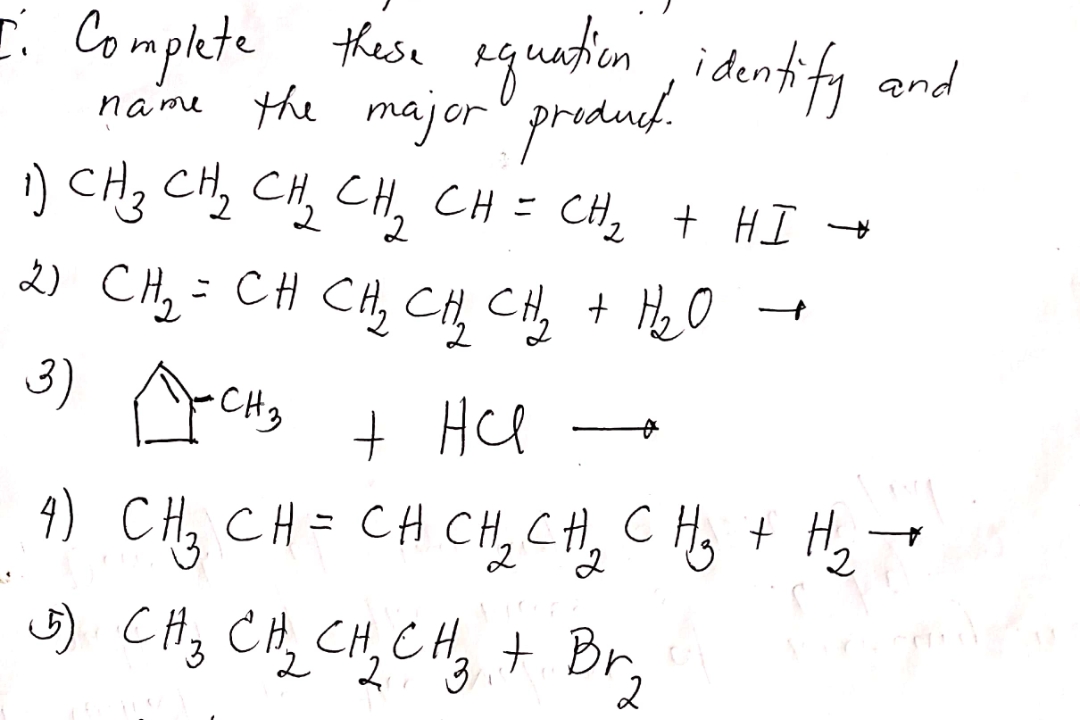 I. Complete these equation, identify and
name the major product.
1) CH₃ CH₂ CH₂ CH₂ CH = CH₂ + HI →
2) CH₂ = CH CH₂ CH₂ CH₂ + H₂O →
3) -CH₃ + HCl →
4) CH₃ CH = CH CH₂ CH₂ CH₃ + H₂ →
5) CH₃ CH₂ CH₂ CH₃ + Br₂